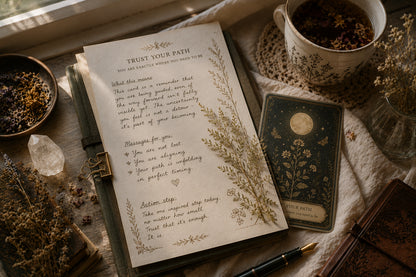 TRUST YOUR PATH
YOU ARE EXACTLY WHERE YOU NEED TO BE
What this means
This card is a reminder that
you are being guided, even if
the way forward isn't fully
visible yet. The uncertainty
you feel is not a detour –
it's part of your becoming.
Messages for you
You are not lost.
You are aligning.
Your path is unfolding
in perfect timing.
Action step
Take one inspired step today,
no matter how small.
Trust that it's enough.
It is.
YOUR PATH